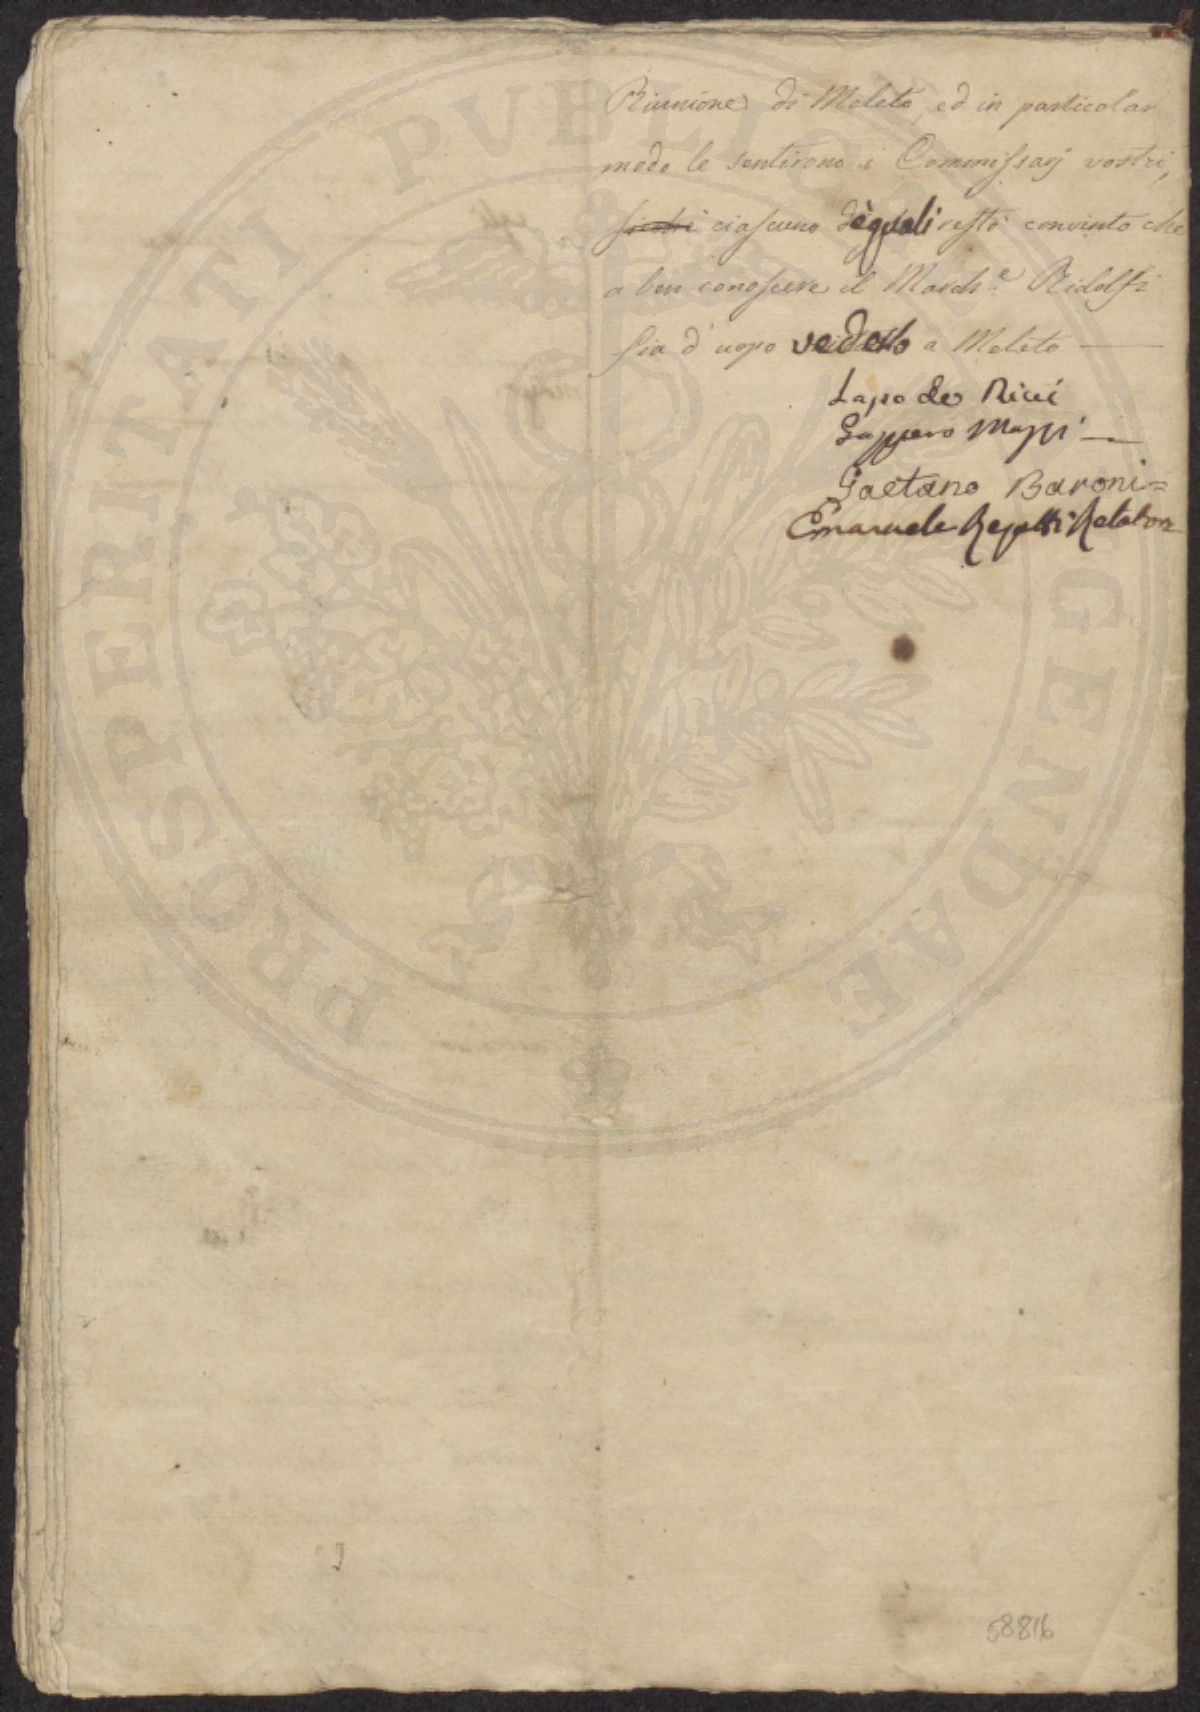 Riunione di Meleto, ed in particolar
modo le sentirono i Commissarj vostri,
ciascuno dèquali restò convinto che
a ben conoscere il March.e Ridolfi
sia d'uopo vederlo a Meleto —
Lapo de Ricci
Mazzi —
Gaetano Baroni =
Emanuele Repetti Relatore
PROSPERITATI PVBLICAE AVGENDAE
58816